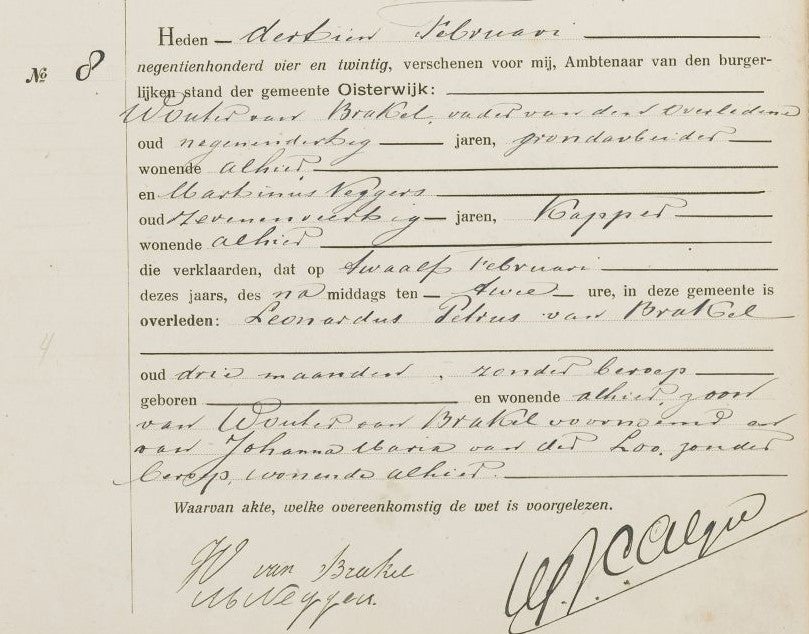 No 8
Heden dertien Februari
negentienhonderd vier en twintig, verschenen voor mij, Ambtenaar van den burger-
lijken stand der gemeente Oisterwijk:
Wouter van Brakel, vader van den overledene
oud negenendertig jaren, grondarbeider
wonende alhier
en Martinus Neggers
oud zevenenveertig jaren, Kapper
wonende alhier
die verklaarden, dat op twaalf Februari
dezes jaars, des na middags ten twee ure, in deze gemeente is
overleden: Leonardus Petrus van Brakel
oud drie maanden, zonder beroep
geboren en wonende alhier, zoon
van Wouter van Brakel voornoemd en
van Johanna Maria van der Loo, zonder
beroep, wonende alhier.
Waarvan akte, welke overeenkomstig de wet is voorgelezen.
W van Brakel
M Neggers.